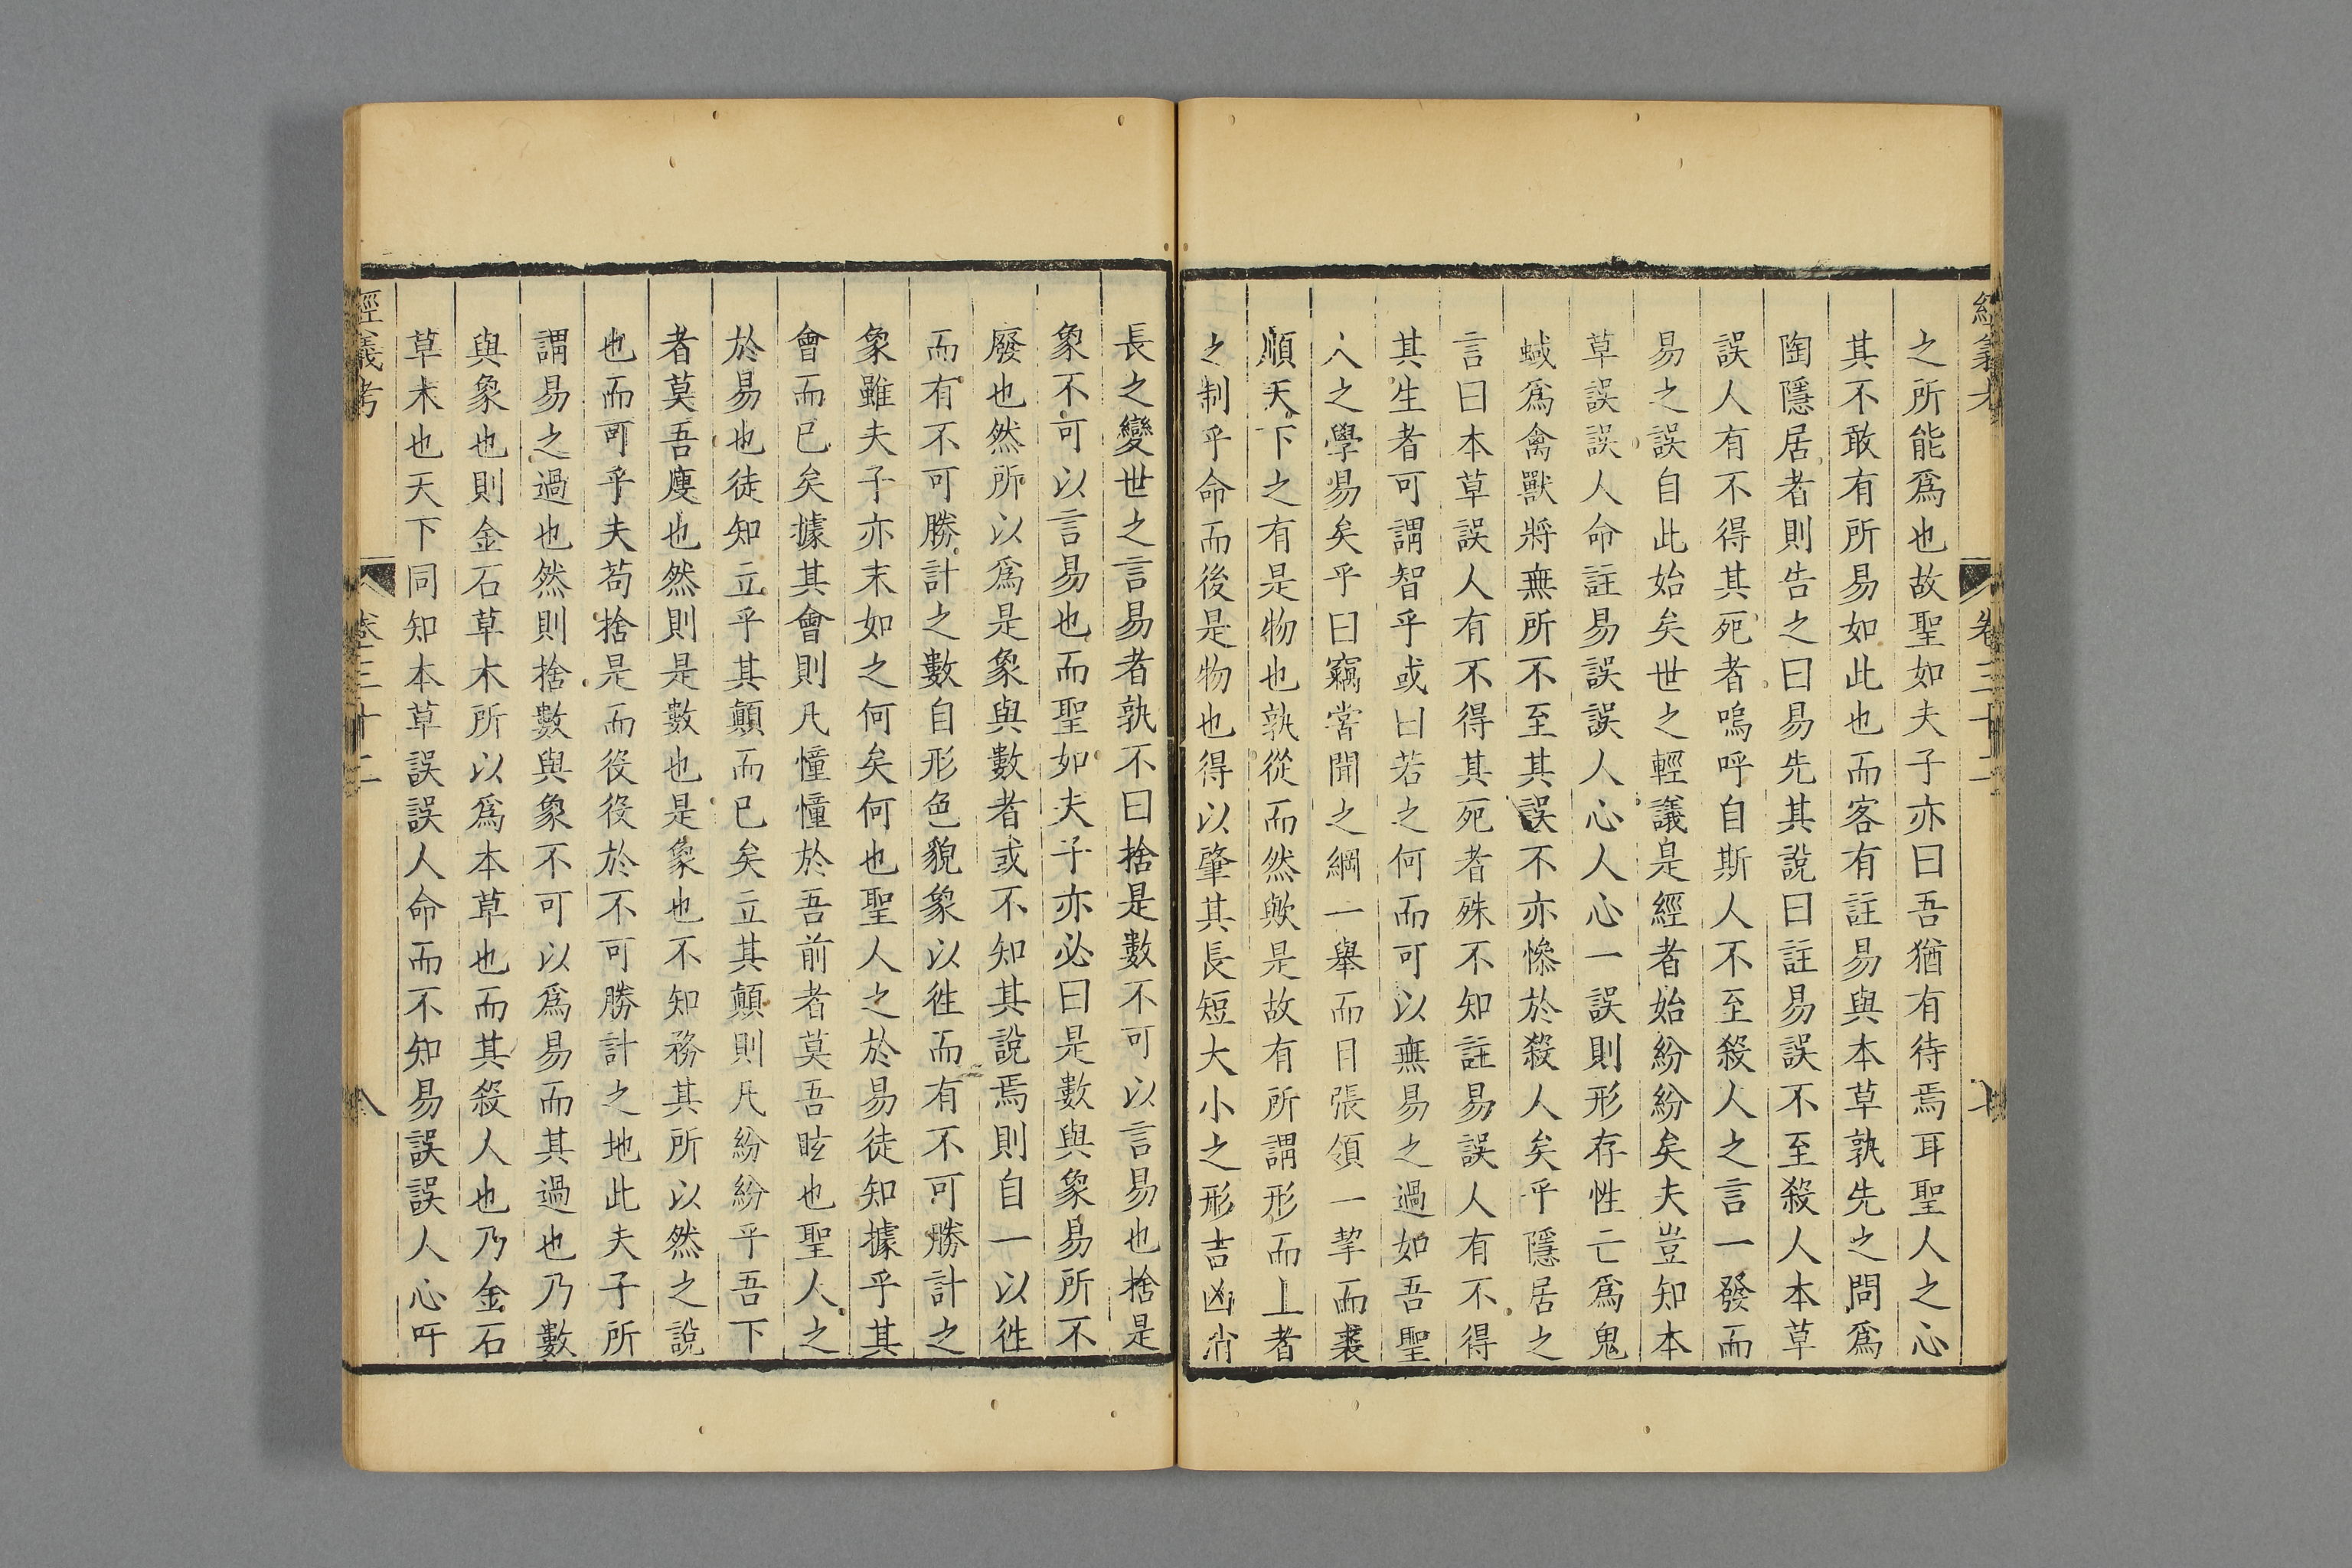 之所能爲也故聖如夫子亦曰吾猶有待焉耳聖人之心
其不敢有所易如此也而客有註易與本草孰先之問爲
陶隱居者則告之曰易先其說曰註易誤不至殺人本草
誤人有不得其死者嗚呼自斯人不至殺人之言一發而
易之誤自此始矣世之輕議是經者始紛紛矣夫豈知本
草誤誤人命註易誤誤人心人心一誤則形存性亡爲鬼
蜮爲禽獸將無所不至其誤不亦慘於殺人矣乎隱居之
言曰本草誤人有不得其死者殊不知註易誤人有不得
其生者可謂智乎或曰若之何而可以無易之過如吾聖
人之學易矣乎曰竊嘗聞之綱一舉而目張領一挈而裘
順天下之有是物也孰從而然歟是故有所謂形而上者
之制乎命而後是物也得以肇其長短大小之形吉凶消
長之變世之言易者孰不曰捨是數不可以言易也捨是
象不可以言易也而聖如夫子亦必曰是數與象易所不
廢也然所以爲是象與數者或不知其說焉則自一以徃
而有不可勝計之數自形色貌象以徃而有不可勝計之
象雖夫子亦末如之何矣何也聖人之於易徒知據乎其
會而已矣據其會則凡憧憧於吾前者莫吾眩也聖人之
於易也徒知立乎其顛而已矣立其顛則凡紛紛乎吾下
者莫吾廋也然則是數也是象也不知務其所以然之說
也而可乎夫苟捨是而役役於不可勝計之地此夫子所
謂易之過也然則捨數與象不可以爲易而其過也乃數
與象也則金石草木所以爲本草也而其殺人也乃金石
草木也天下同知本草誤誤人命而不知易誤誤人心吁
經義考
卷三十二
八